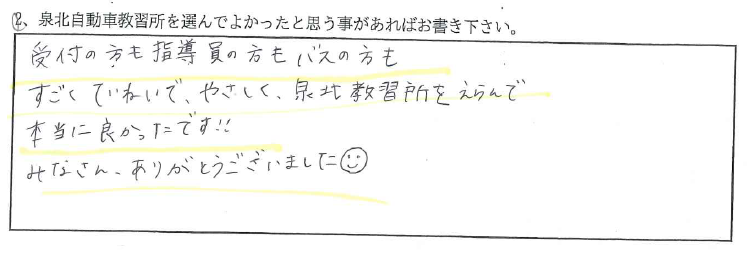 ⑫、泉北自動車教習所を選んでよかったと思う事があればお書き下さい。
受付の方も指導員の方もバスの方も
すごくていねいで、やさしく、泉北教習所をえらんで
本当に良かったです!!
みなさん、ありがとうございました☺